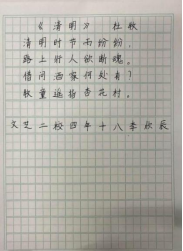 《清明》 杜牧
清明时节雨纷纷，
路上行人欲断魂。
借问酒家何处有？
牧童遥指杏花村。
文芝二校四年十八李欣辰